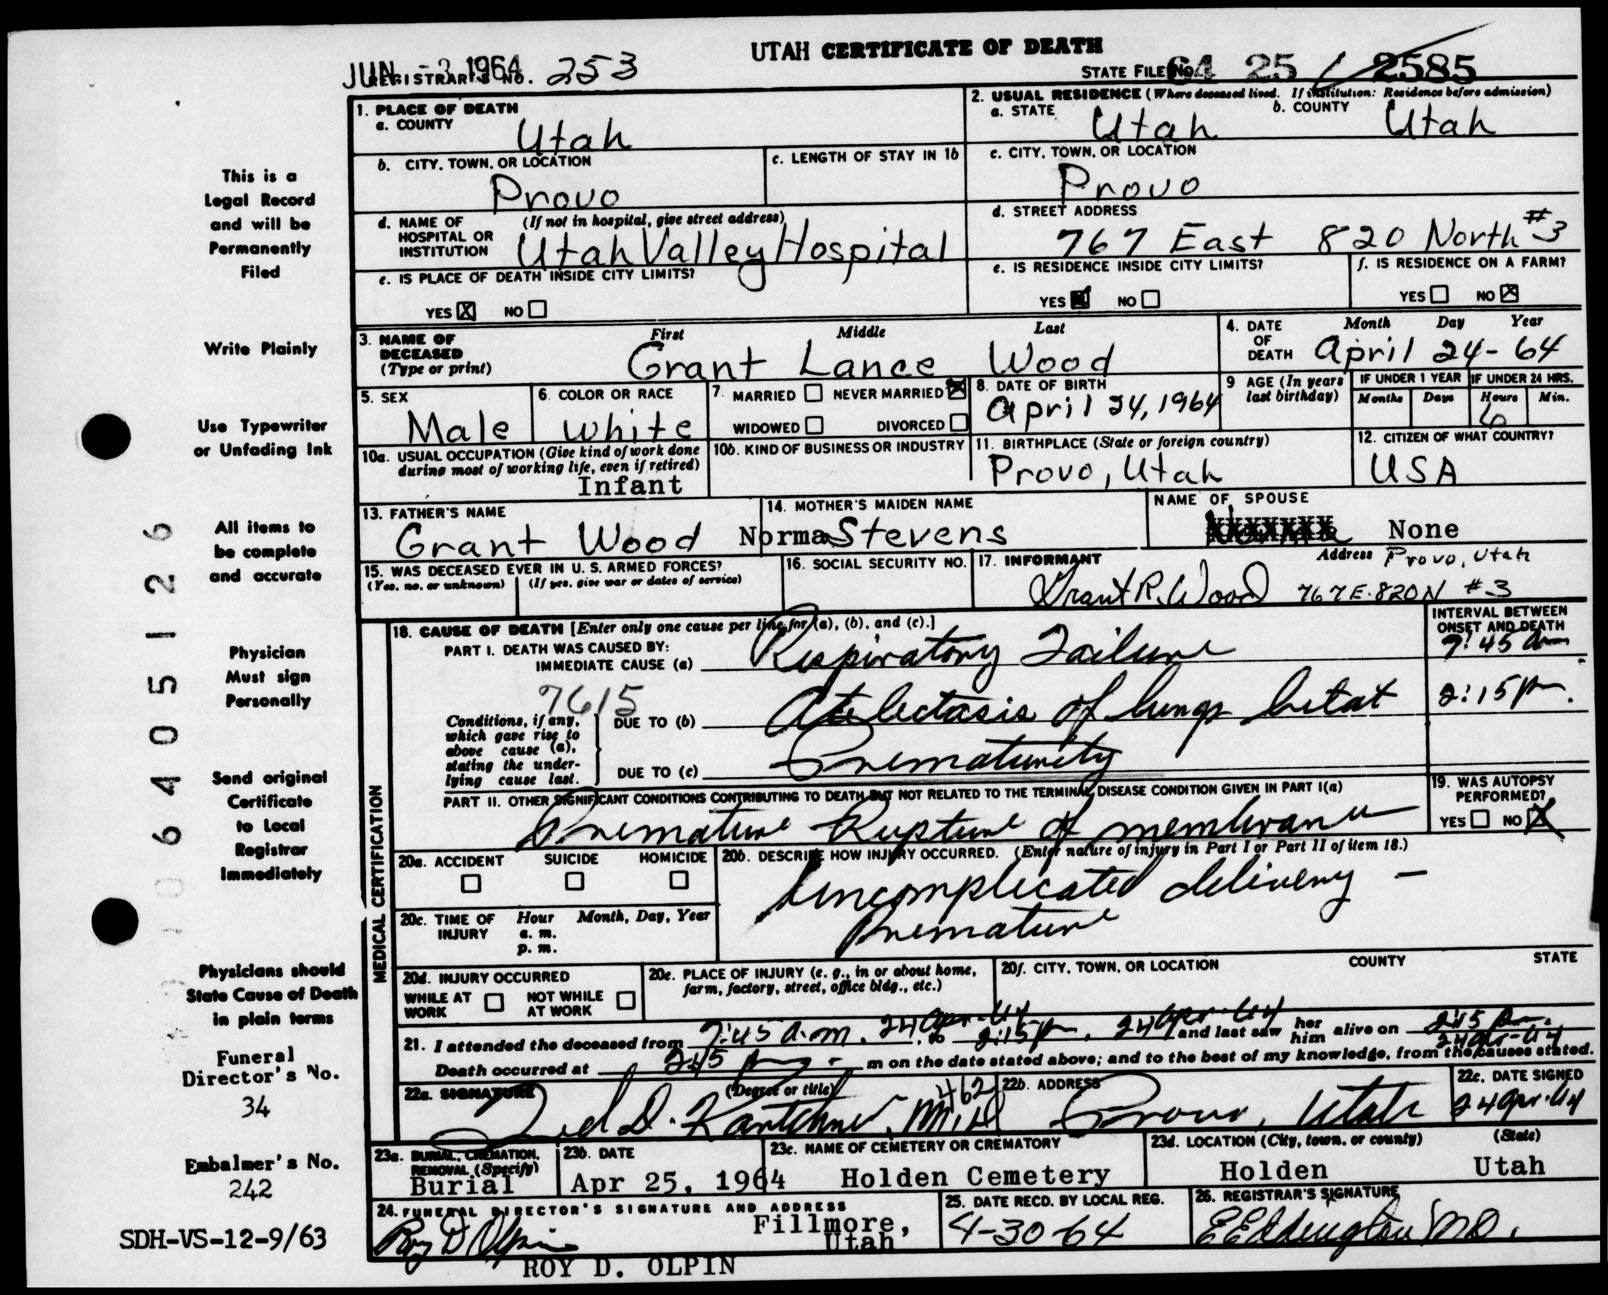 UTAH CERTIFICATE OF DEATH
JUN -3 1964
REGISTRAR'S NO. 253
STATE FILE NO. 64 25 2585
1. PLACE OF DEATH
a. COUNTY Utah
2. USUAL RESIDENCE (Where deceased lived. If institution: Residence before admission)
a. STATE Utah b. COUNTY Utah
b. CITY, TOWN, OR LOCATION Provo
c. LENGTH OF STAY IN 1b
c. CITY, TOWN, OR LOCATION Provo
d. NAME OF HOSPITAL OR INSTITUTION (If not in hospital, give street address) Utah Valley Hospital
d. STREET ADDRESS 767 East 820 North #3
e. IS PLACE OF DEATH INSIDE CITY LIMITS?
YES X NO
e. IS RESIDENCE INSIDE CITY LIMITS?
YES X NO
f. IS RESIDENCE ON A FARM?
YES NO X
3. NAME OF DECEASED (Type or print)
First Middle Last
Grant Lance Wood
4. DATE OF DEATH Month Day Year
April 24-64
5. SEX Male
6. COLOR OR RACE White
7. MARRIED NEVER MARRIED X
WIDOWED DIVORCED
8. DATE OF BIRTH April 24, 1964
9 AGE (In years last birthday)
IF UNDER 1 YEAR Months Days
IF UNDER 24 HRS. Hours Min.
6
10a. USUAL OCCUPATION (Give kind of work done during most of working life, even if retired)
Infant
10b. KIND OF BUSINESS OR INDUSTRY
11. BIRTHPLACE (State or foreign country)
Provo, Utah
12. CITIZEN OF WHAT COUNTRY?
USA
13. FATHER'S NAME
Grant Wood
14. MOTHER'S MAIDEN NAME
Norma Stevens
NAME OF SPOUSE
XXXXXXX None
15. WAS DECEASED EVER IN U. S. ARMED FORCES?
(Yes, no, or unknown) (If yes, give war or dates of service)
16. SOCIAL SECURITY NO.
17. INFORMANT Address Provo, Utah
Grant R. Wood 767 E. 820 N #3
MEDICAL CERTIFICATION
18. CAUSE OF DEATH [Enter only one cause per line for (a), (b), and (c).]
INTERVAL BETWEEN ONSET AND DEATH
PART I. DEATH WAS CAUSED BY:
IMMEDIATE CAUSE (a) Respiratory Failure 7:45 am
7615
Conditions, if any, which gave rise to above cause (a), stating the underlying cause last.
DUE TO (b) Atelectasis of lungs bilat 2:15 pm.
DUE TO (c) Prematurity
PART II. OTHER SIGNIFICANT CONDITIONS CONTRIBUTING TO DEATH BUT NOT RELATED TO THE TERMINAL DISEASE CONDITION GIVEN IN PART I(a)
Premature Rupture of membranes
19. WAS AUTOPSY PERFORMED?
YES NO X
20a. ACCIDENT SUICIDE HOMICIDE
20b. DESCRIBE HOW INJURY OCCURRED. (Enter nature of injury in Part I or Part II of item 18.)
Uncomplicated delivery -
Premature
20c. TIME OF INJURY Hour Month, Day, Year
a. m.
p. m.
20d. INJURY OCCURRED
WHILE AT WORK NOT WHILE AT WORK
20e. PLACE OF INJURY (e. g., in or about home, farm, factory, street, office bldg., etc.)
20f. CITY, TOWN, OR LOCATION COUNTY STATE
21. I attended the deceased from 7:45 a.m. 24 Apr-64 to 2:15 pm, 24 Apr-64 and last saw her him alive on 2:15 pm. 24 Apr-64
Death occurred at 2:15 p m on the date stated above; and to the best of my knowledge, from the causes stated.
22a. SIGNATURE (Degree or title) 462
M.D.
22b. ADDRESS
Provo, Utah
22c. DATE SIGNED
24 Apr-64
23a. BURIAL, CREMATION, REMOVAL (Specify)
Burial
23b. DATE
Apr 25, 1964
23c. NAME OF CEMETERY OR CREMATORY
Holden Cemetery
23d. LOCATION (City, town, or county) (State)
Holden Utah
24. FUNERAL DIRECTOR'S SIGNATURE AND ADDRESS
Roy D Olpin Fillmore, Utah
ROY D. OLPIN
25. DATE RECD. BY LOCAL REG.
4-30-64
26. REGISTRAR'S SIGNATURE
E E Eddington MD.
This is a
Legal Record
and will be
Permanently
Filed
Write Plainly
Use Typewriter
or Unfading Ink
All items to
be complete
and accurate
Physician
Must sign
Personally
Send original
Certificate
to Local
Registrar
Immediately
Physicians should
State Cause of Death
in plain terms
Funeral
Director's No.
34
Embalmer's No.
242
SDH-VS-12-9/63
06405126